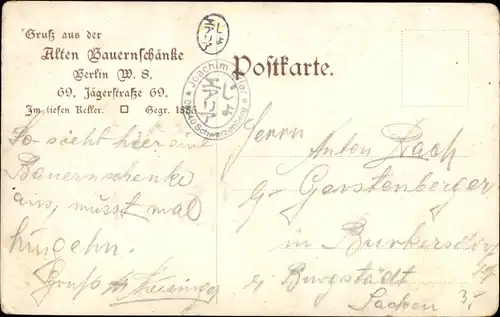 Gruß aus der
Alten Bauernschänke
Berlin W. 8.
69, Jägerstraße 69.
Im tiefen Keller. □ Gegr. 1885
Postkarte.
Joachim
Schwarzenberg
So sieht hier eine
Bauernschenke
aus, musst mal
hingehn.
Gruss
Herrn
Anton Bach
Gerstenberger
in Burkersdorf
b/ Burgstädt
Sachsen
3,-